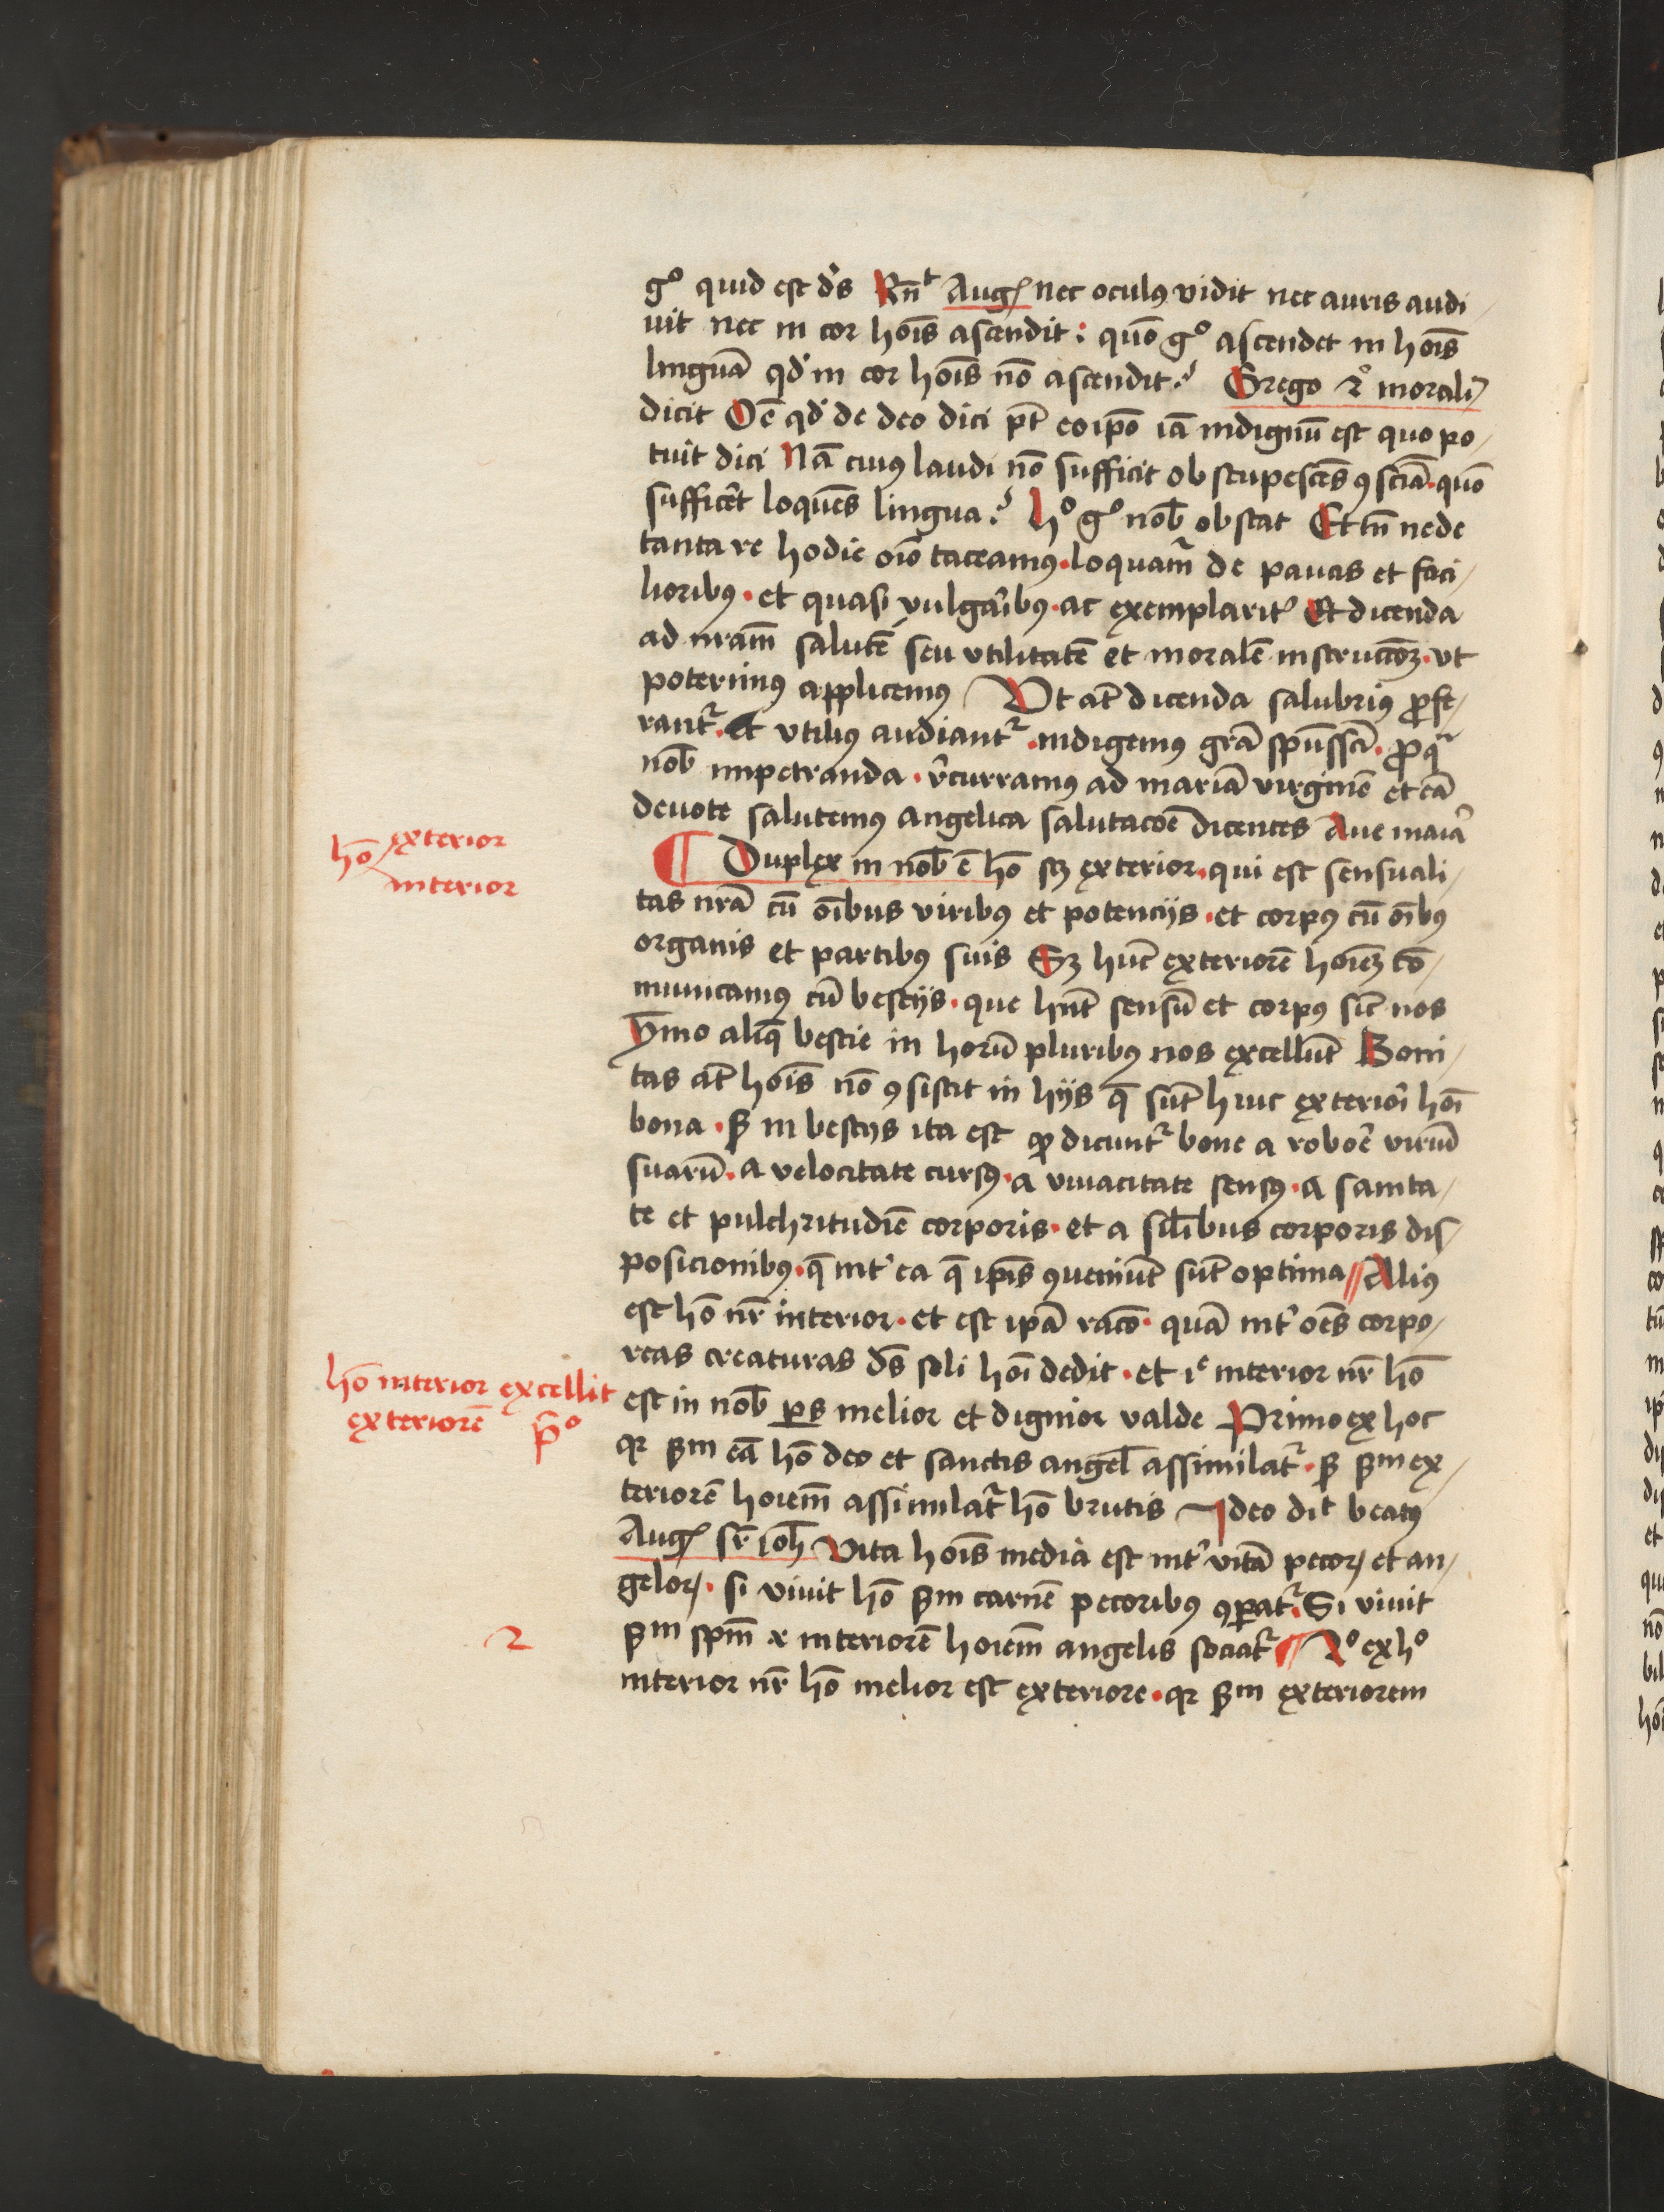 gͦ quid est dˢs Rn̄ᵗ Augꝰ nec oculꝰ vidit nec auris audi/
uit nec in cor hoīs ascendit: quō gͦ ascendet in hoīs
linguā qd' in cor hoīs nō ascendit? Grego 2ͦ morali
dicit Oē qd' de deo dici pt̄ eoip̄o iā indignū est quo po/
tuit dici Nā cuiꝰ laudi nō sufficit obstupescēs ꝯsciā. quō
sufficēt loquēs lingua? hͦ gͦ nob̄ obstat Et tn̄ ne de
tanta re hodie oīo taceamꝰ. loquamᷣ de paucis et faci/
lioribꝰ. et quasi vulgaribꝰ. ac exemplarit' Et dicenda
ad nr̄am salutē seu vtilitatē et moralē instructōꝫ. vt
poterimꝰ applicemꝰ Vt at̄ dicenda salubriꝰ ꝓfe/
rantᷣ. et vtiliꝰ audiantᷣ. indigemꝰ gr̄a spūssc̄i. ꝓ qᷓ
nob̄ impetranda. rc̄urramꝰ ad mariā virginē et eā
deuote salutemꝰ angelica salutacōe dicentes Aue maīa
hō exterior
interior
¶ Duplex in nob̄ ē hō sꝫ exterior. qui est sensuali/
tas nr̄a cū oībus viribꝰ et potencijs. et corpꝰ cū oībꝰ
organis et partibꝰ suis Sꝫ hūc exteriorē hoīeꝫ cō/
municamꝰ cū bestijs. que hn̄t sensū et corpꝰ sic̄ nos
ymo aliq̄ bestie in horū pluribꝰ nos excellūt Boni/
tas at̄ hoīs nō ꝯsistit in hijs q̄ sūt huic exteriori hoī
bona. ꝫ in bestijs ita est ꝙ dicuntᷣ bone a roboē viriū
suarū. a velocitate cursꝰ. a viuacitate sensꝰ. a sanita/
te et pulchritudīe corporis. et a sil̄ibus corporis dis/
posicionibꝰ. q̄ int' ea q̄ ip̄is ꝯueniūt sūt optima // Aliꝰ
est hō nr̄ interior. et est ip̄a racō. quā int' oēs corpo/
reas creaturas dˢs soli hoī dedit. et iᵉ interior nr̄ hō
hō interior excellit
exteriorē p̄ͦ
est in nob̄ ꝑs melior et dignior valde Primo ex hoc
qꝛ ẜm eā hō deo et sanctis angel̄ assimilatᷣ. ꝫ ẜm ex/
teriorē hoīem assimilatᷣ hō brutis Ideo dic̄ beatꝰ
Augꝰ sr̄ ioh̄ Vita hoīs media est int' vitā pecoꝝ et an/
geloꝝ. si viuit hō ẜm carnē pecoribꝰ ꝯꝑatᷣ. Si viuit
2
ẜm spm̄ ⁊ interiorē hoīem angelis sociatᷣ // 2ͦ ex hͦ
interior nr̄ hō melior est exteriore. qꝛ ẜm exteriorem